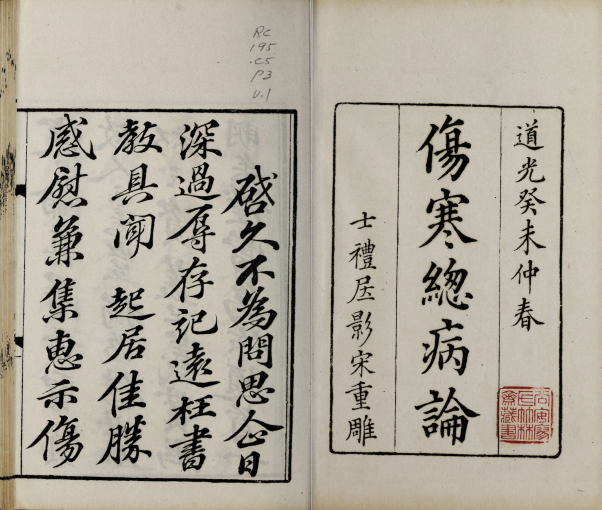 道光癸未仲春
傷寒總病論
士禮居影宋重雕
啓久不為問思企日
深過辱存記遠枉書
教具聞 起居佳勝
感慰兼集惠示傷
RC
195
.C5
P3
V.1